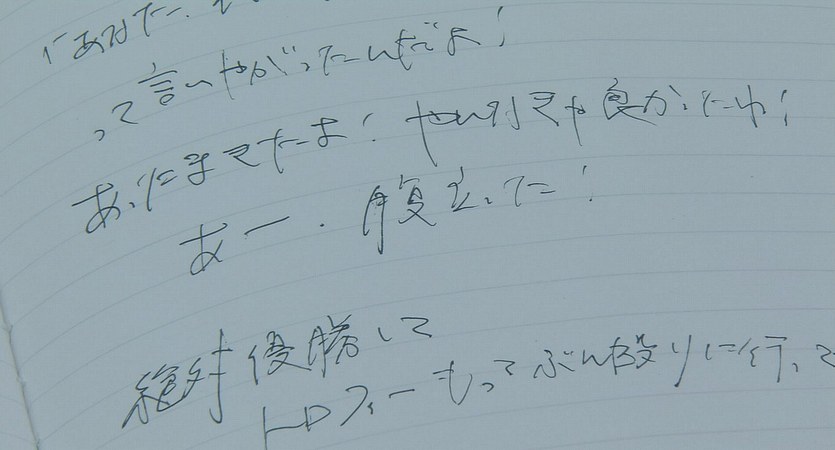 にあった、
って言いやがったんだよ！
あったまきたよ！やめりゃ良かったわ！
あー、腹立った！
絶対優勝して
トロフィーもってぶん殴りに行って